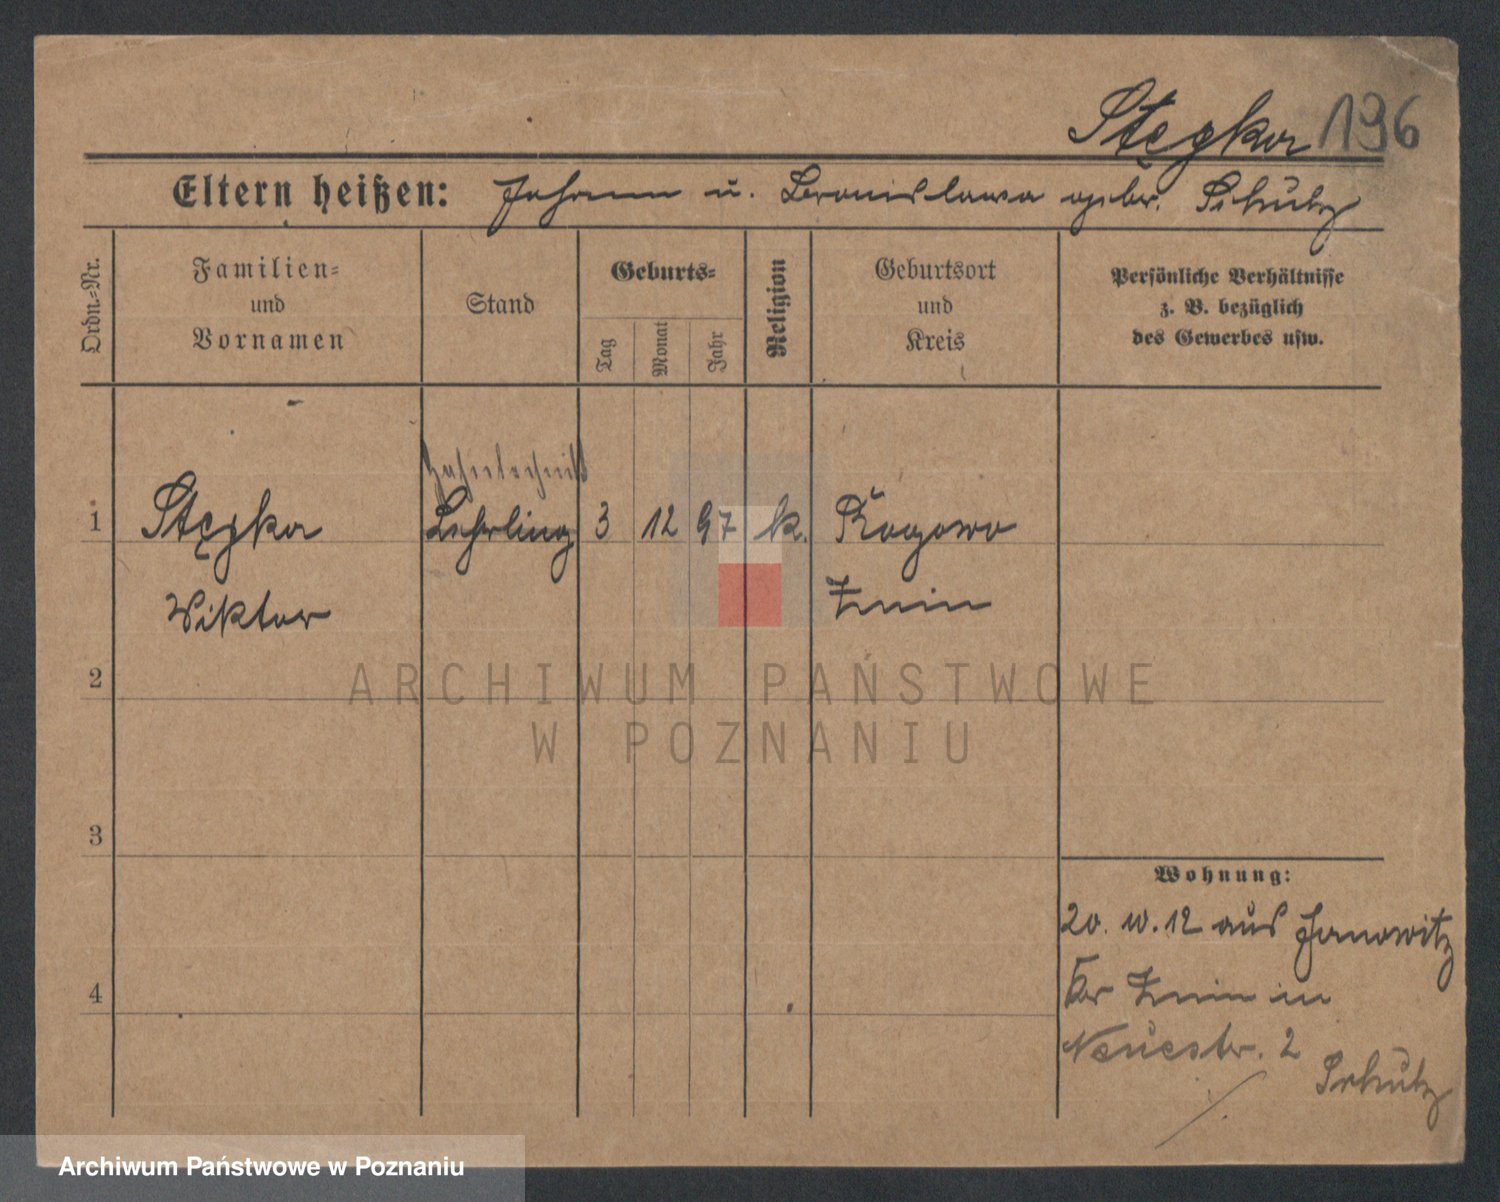 Stęzka 196
Eltern heißen: Johann u. Bronislawa gebr. Schultz
Ordn.=Nr.
Familien=
und
Vornamen
Stand
Geburts=
Tag
Monat
Jahr
Religion
Geburtsort
und
Kreis
Persönliche Verhältnisse
z. B. bezüglich
des Gewerbes usw.
Zahntechnik
1 Stęzka Lehrling 3 12 97 k. Rogowo
Wiktor Znin
2
3
4
Wohnung:
20. 10. 12 aus Janowitz
Kr Znin in
Neuestr. 2
Schultz
ARCHIWUM PAŃSTWOWE
W POZNANIU
Archiwum Państwowe w Poznaniu